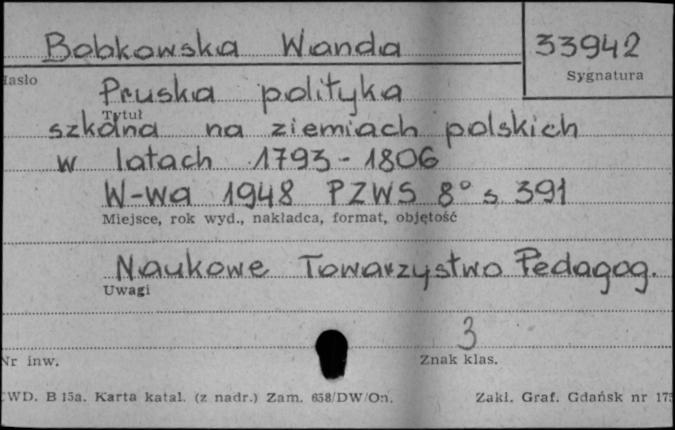 Bobkowska Wanda
33942
Hasło
Sygnatura
Pruska polityka
Tytuł
szkolna na ziemiach polskich
w latach 1793-1806
W-wa 1948 PZWS 8° s 391
Miejsce, rok wyd., nakładca, format, objętość
Naukowe Towarzystwo Pedagog.
Uwagi
3
Nr inw.
Znak klas.
CWD. B 15a. Karta katal. (z nadr.) Zam. 658/DW/On.
Zakł. Graf. Gdańsk nr 175